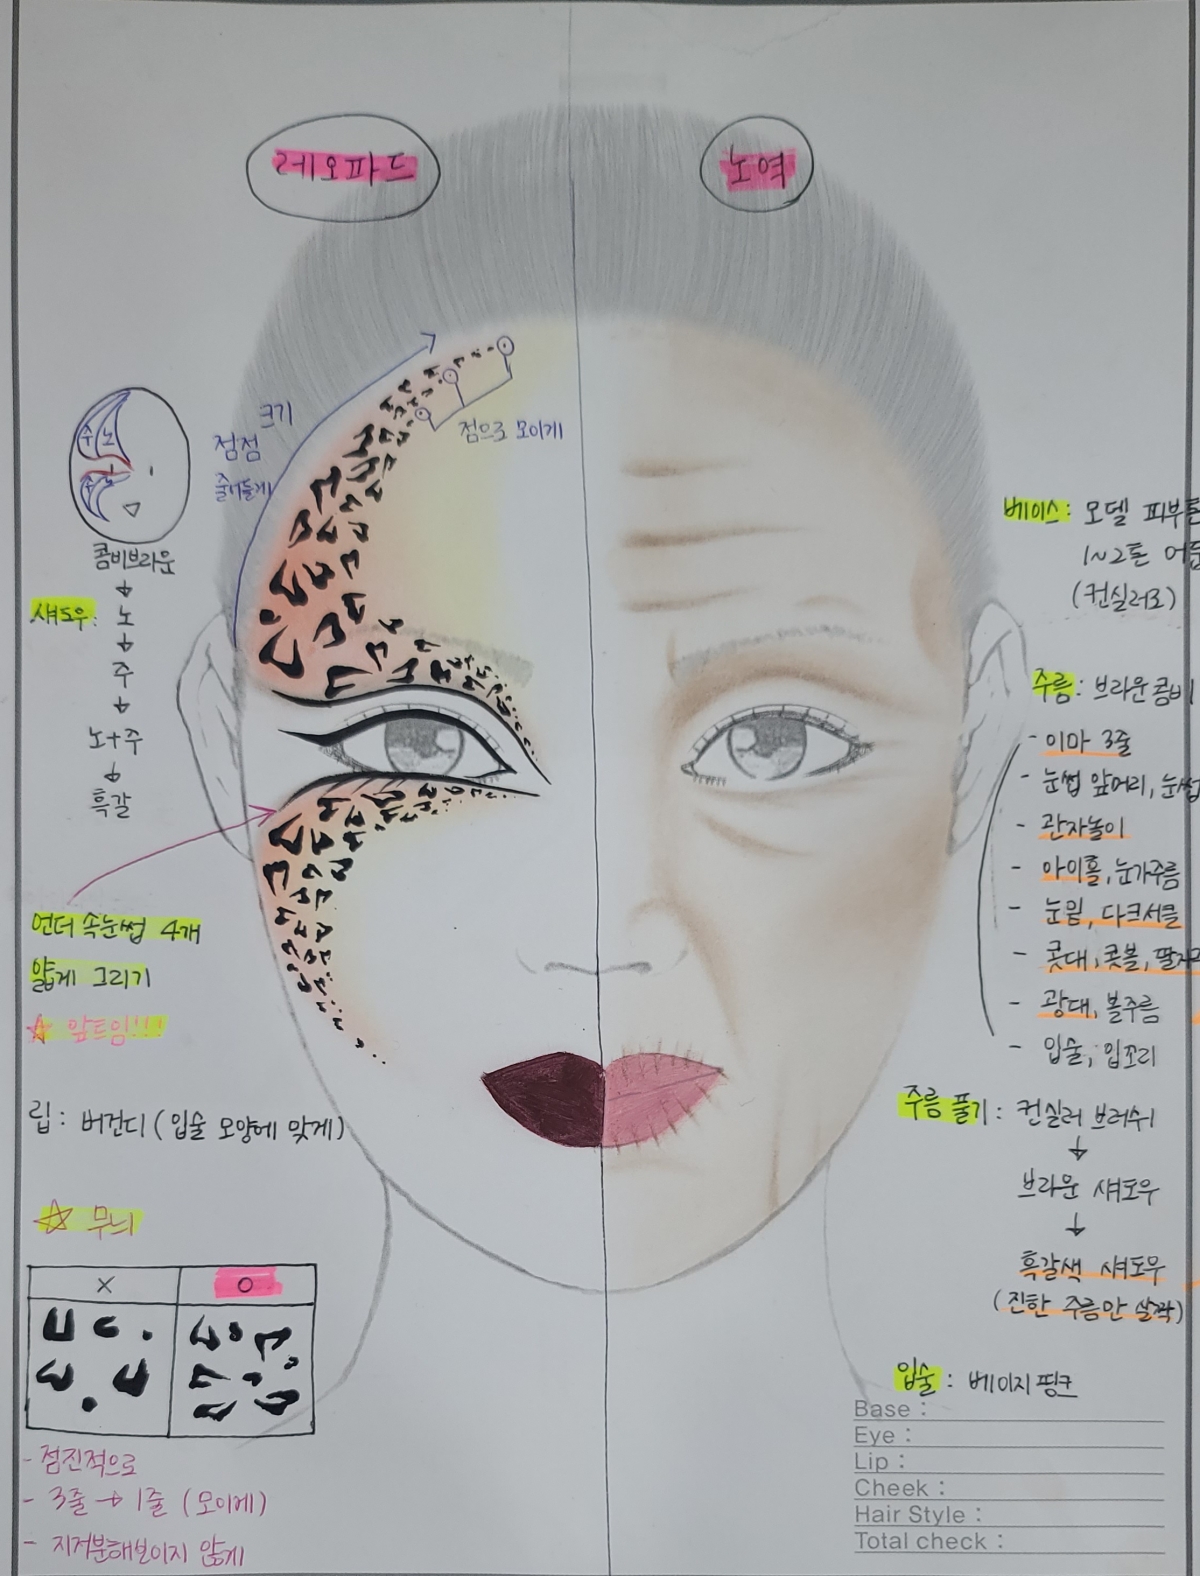 레오파드
노역
크기
점점
줄어들게
점으로 모이게
주 노
주 노
콤비브라운
↓
섀도우: 노
↓
주
↓
노+주
↓
흑갈
언더 속눈썹 4개
얇게 그리기
☆ 앞트임!!!
립: 버건디 (입술 모양에 맞게)
☆ 무늬
X O
- 점진적으로
- 3줄 → 1줄 (모이게)
- 지저분해보이지 않게
베이스: 모델 피부톤
1~2톤 어둡
(컨실러로)
주름: 브라운 콤비
- 이마 3줄
- 눈썹 앞머리, 눈썹
- 관자놀이
- 아이홀, 눈가주름
- 눈밑, 다크서클
- 콧대, 콧볼, 팔자
- 광대, 볼주름
- 입술, 입꼬리
주름 풀기: 컨실러 브러쉬
↓
브라운 섀도우
↓
흑갈색 섀도우
(진한 주름만 살짝)
입술: 베이지핑크
Base :
Eye :
Lip :
Cheek :
Hair Style :
Total check :